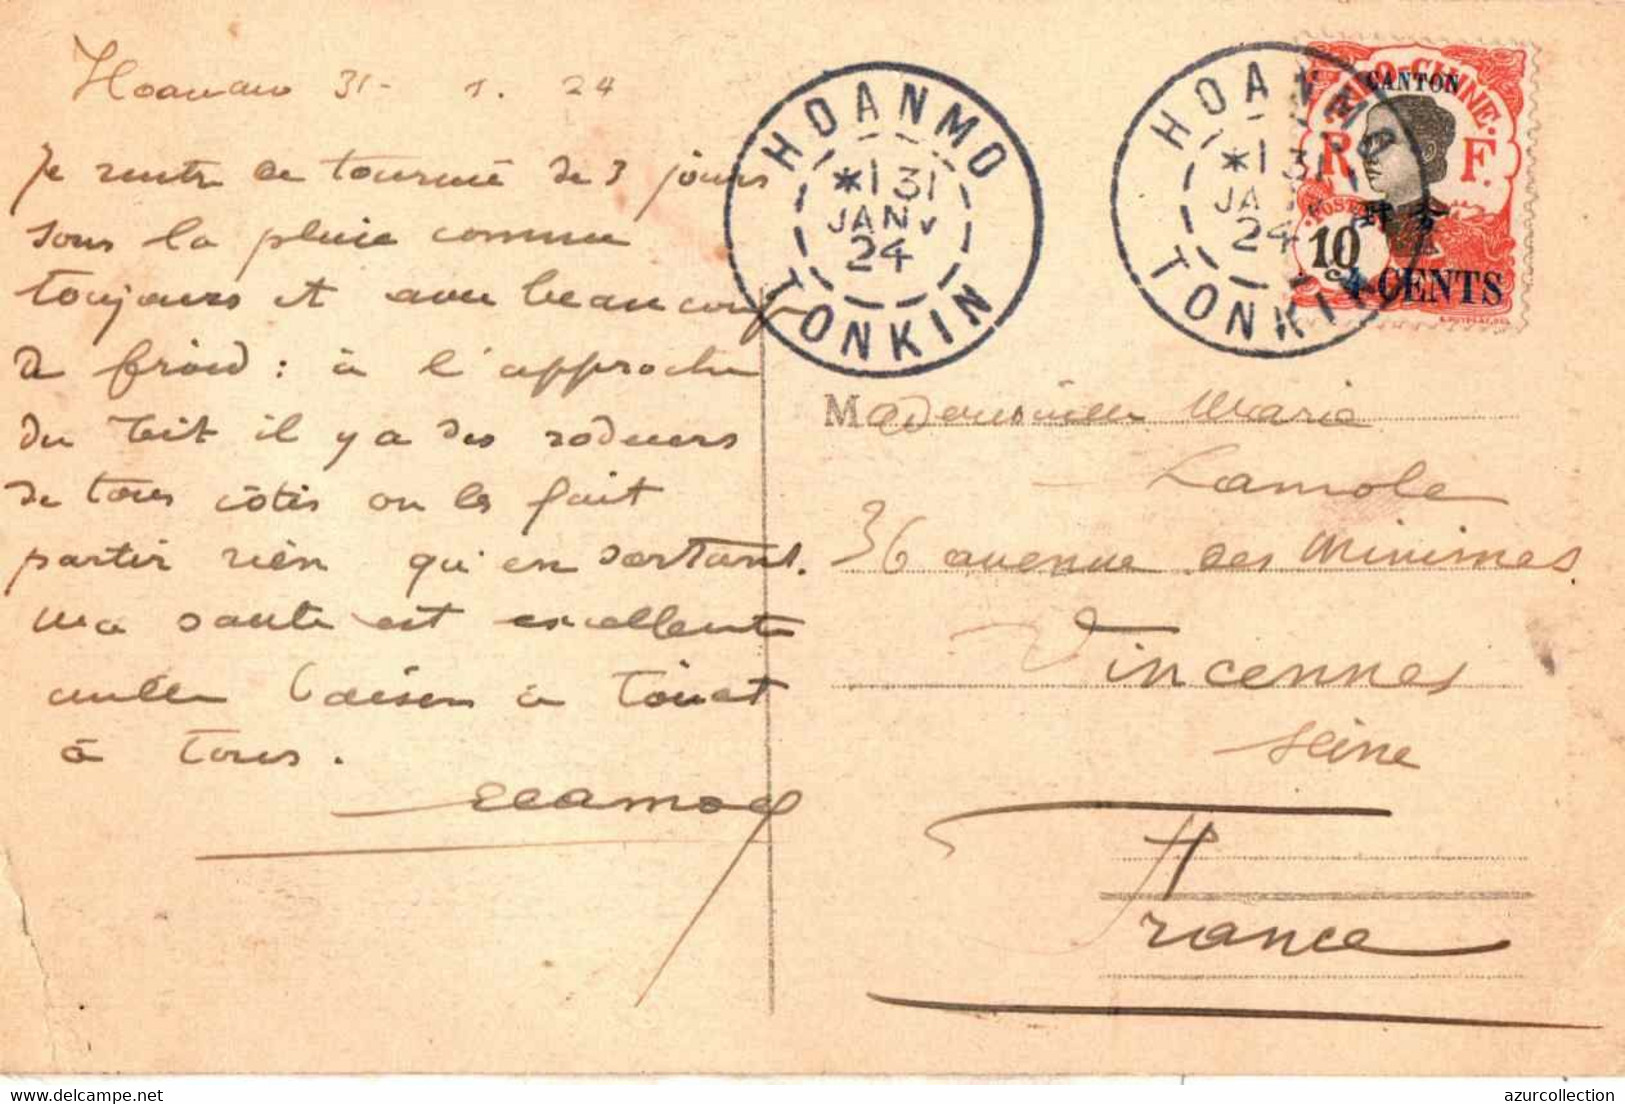 Hoanmo 31 - 1. 24
Je rentre de tournée de 3 jours
sous la pluie comme
toujours et avec beaucoup
de froid : à l'approche
du Têt il y a des rodeurs
de tous côtés on les fait
partir rien qu'en sortant.
ma santé est excellente
mille baisers à toi et
à tous.
HOANMO
*1 31
JANV
24
TONKIN
HOANMO
*1 31
JANV
24
TONKIN
INDO-CHINE.
CANTON
R F.
POSTES
10
4 CENTS
Mademoiselle Marie
Lamole
36 avenue des Minimes
Vincennes
Seine
France
azurcollection